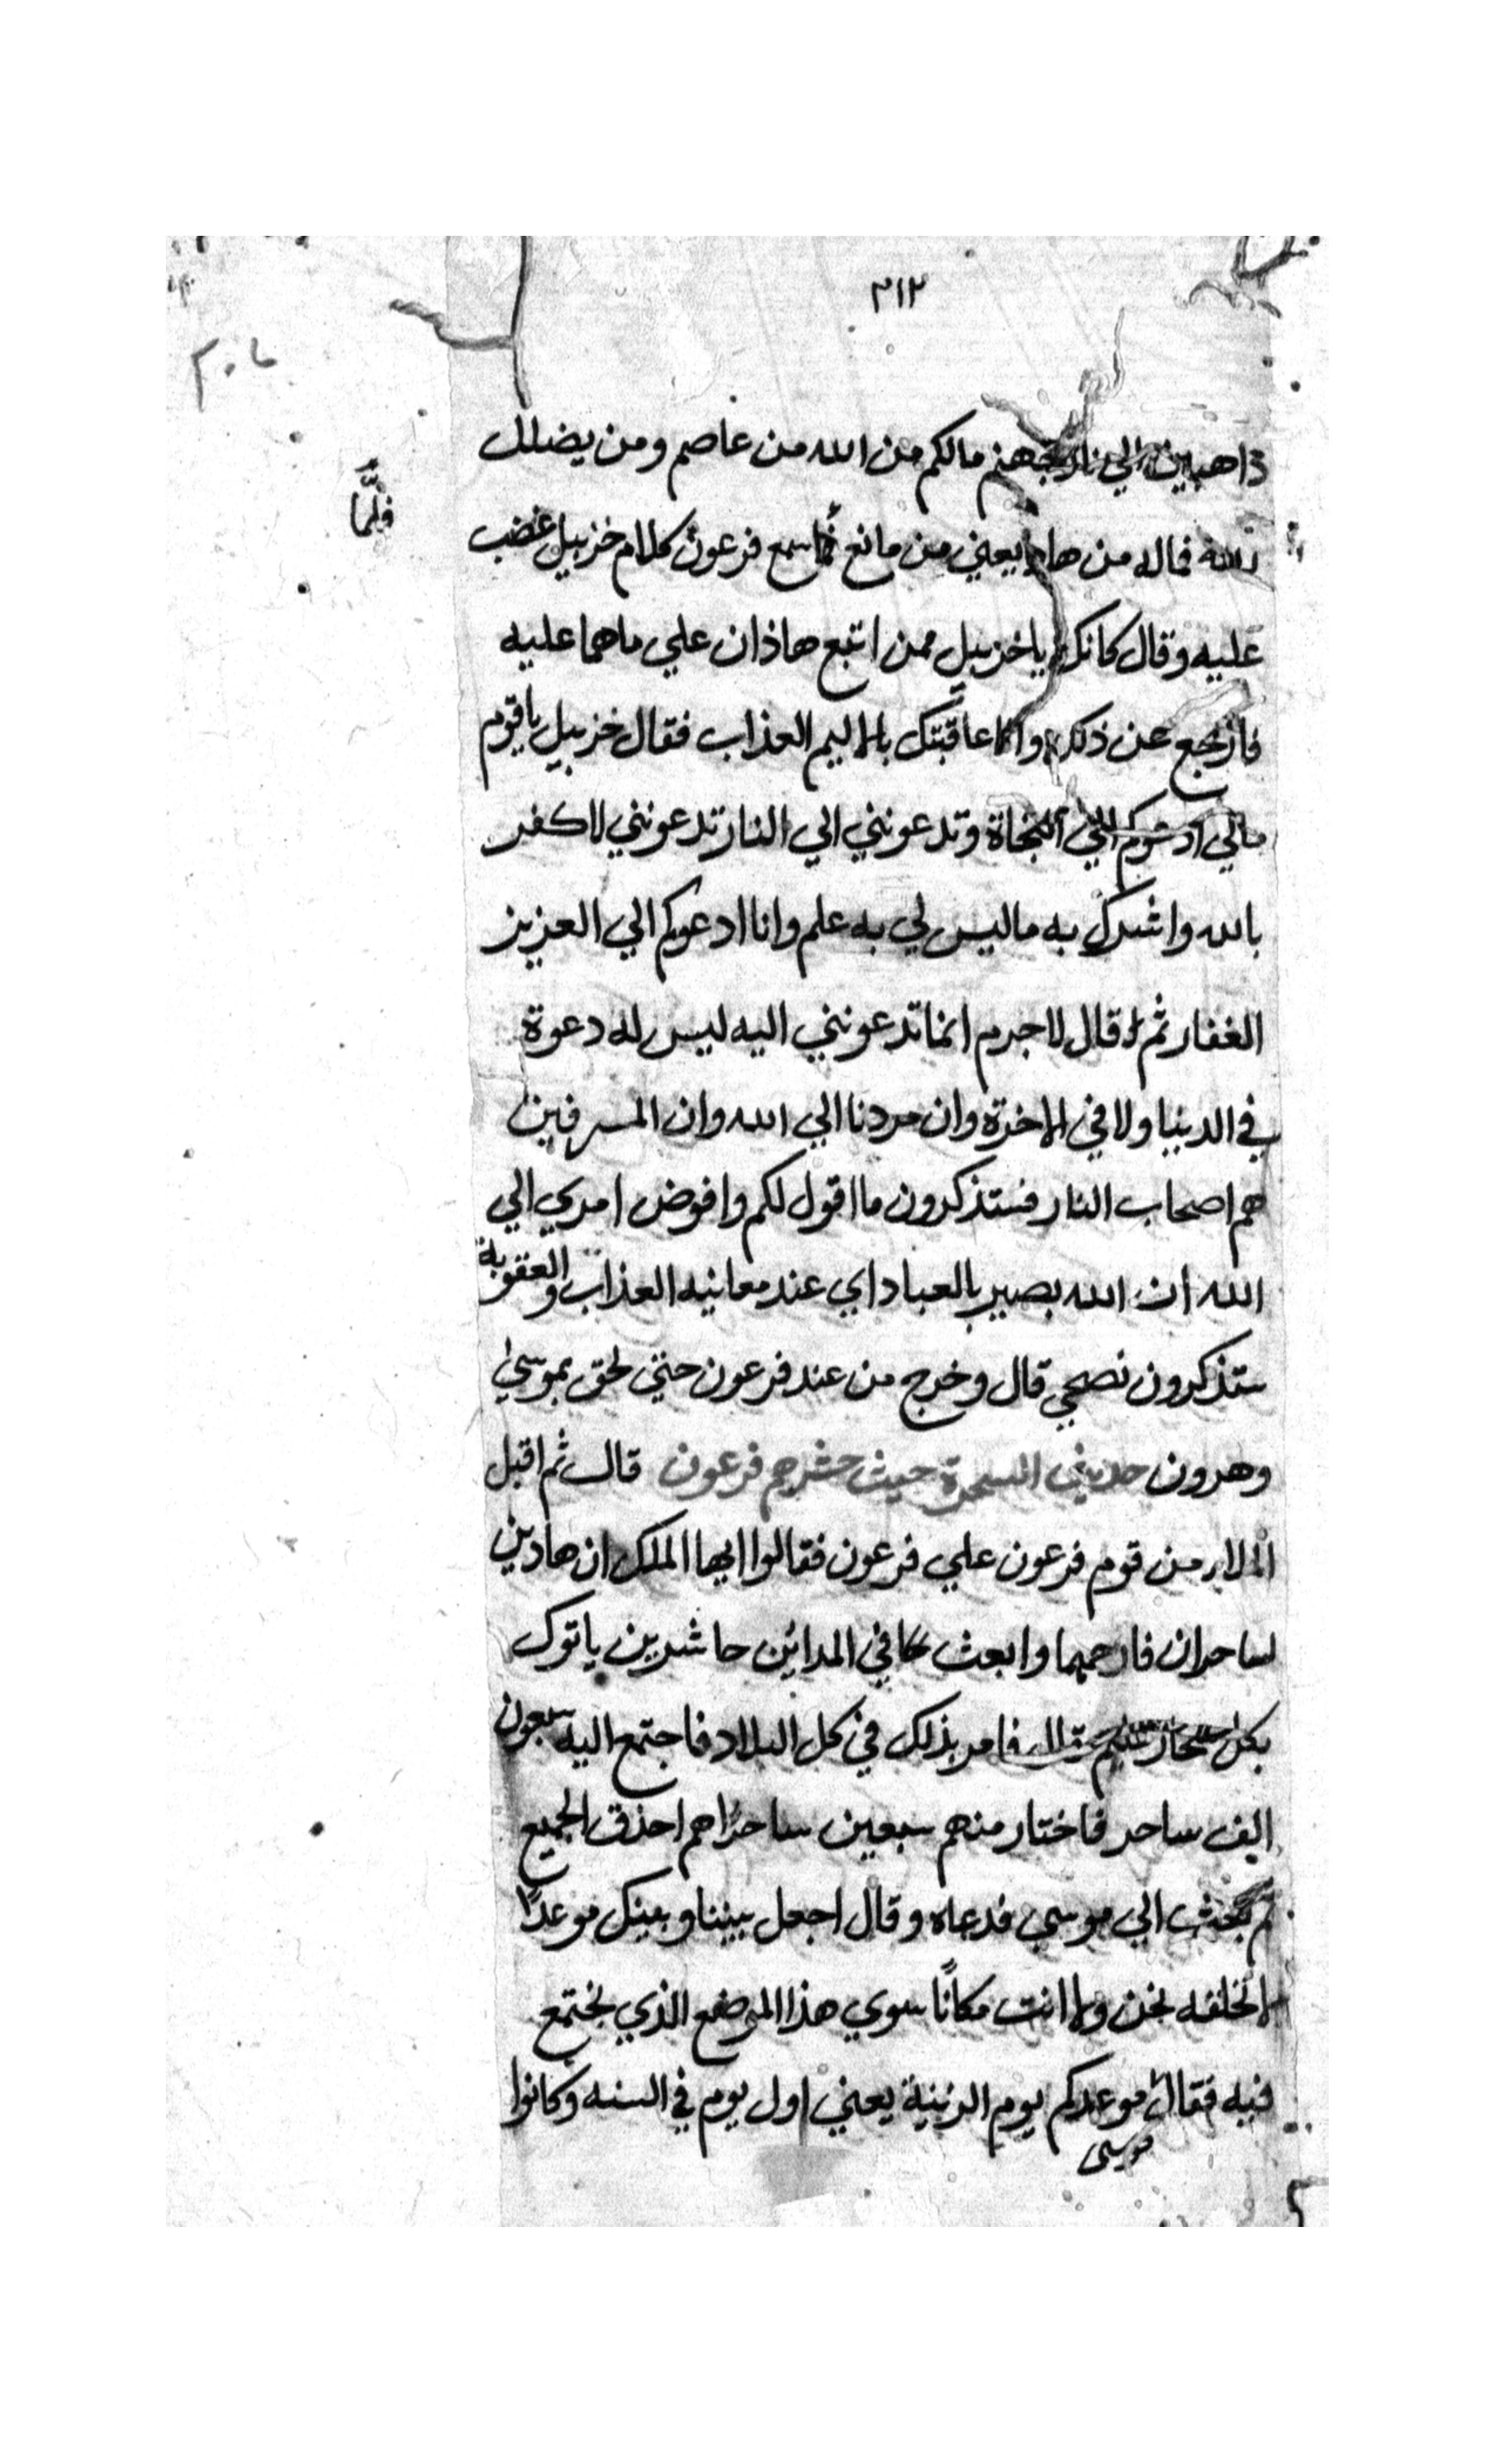 ٣١٢
ذاهبين الي نار جهنم مالكم من الله من عاصم ومن يضلل
الله فماله من هاد يعني من مانع فلما سمع فرعون كلام خزبيل غضب
فلمّا
عليه وقال كانك ياخزبيل ممن اتبع هاذان علي ماهما عليه
فارجع عن ذلك والا عاقبتك بالاليم العذاب فقال خزبيل ياقوم
مالي ادعوكم الي النجاة وتدعونني الي النار تدعونني لاكفر
بالله واشرك به ماليس لي به علم وانا ادعوكم الي العزيز
الغفار ثم قال لاجرم انما تدعونني اليه ليس له دعوة
في الدنيا ولافي الاخرة وان مردنا الي الله وان المسرفين
هم اصحاب النار فستذكرون مااقول لكم وافوض امري الي
الله ان الله بصير بالعباد اي عند معانيه العذاب والعقوبة
ستذكرون نصحي قال وخرج من عند فرعون حتي لحق بموسي
وهرون حديث السحرة حيث حشرهم فرعون قال ثم اقبل
الملاء من قوم فرعون علي فرعون فقالوا ايها الملك ان هاذين
لساحران فارحمهما وابعث في المدائن حاشرين ياتوك
بكل سحار عليم قال فامر بذلك في كل البلاد فاجتمع اليه سبعون
الف ساحر فاختار منهم سبعين ساحرًا هم احذق الجميع
ثم بعث الي موسي فدعاه وقال اجعل بيننا وبينك موعدًا
لانخلفه نحن ولاانت مكانًا سوي هذا الموضع الذي نجتمع
فيه فقال موعدكم يوم الزينة يعني اول يوم في السنه وكانوا
موسى